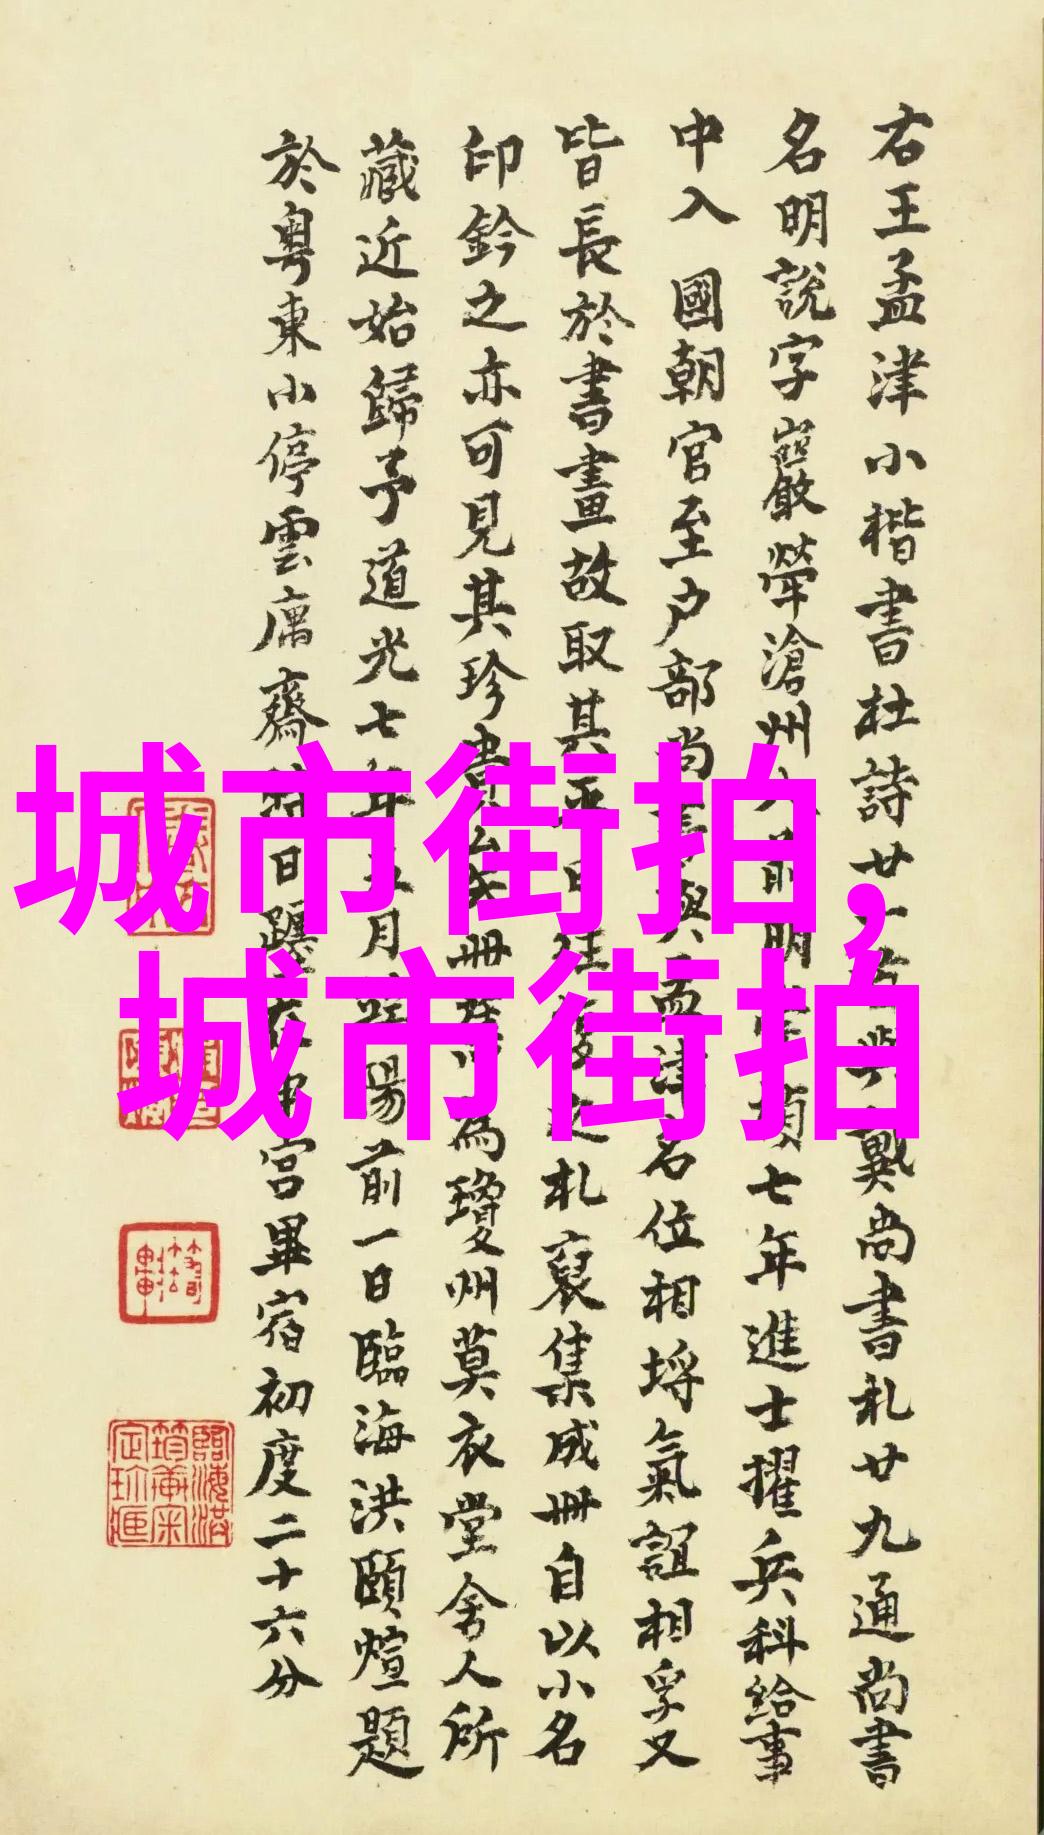 右王孟津小楷書杜詩廿一
戴尚書札廿九通尚書
名明說字巖犖滄州
七年進士擢兵科給事
中入國朝官至戶部尚
名位相埒氣誼相孚又
皆長於書畫故取其
之札裒集成冊自以小名
印鈐之亦可見其珍
為瓊州莫衣堂舍人所
藏近始歸予道光七年
月
陽前一日臨海洪頤煊題
於粵東小停雲
齋
日躔
宮畢宿初度二十六分
城市街拍,
城市街拍